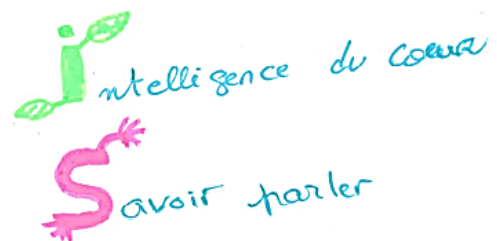 Intelligence du coeur
Savoir parler